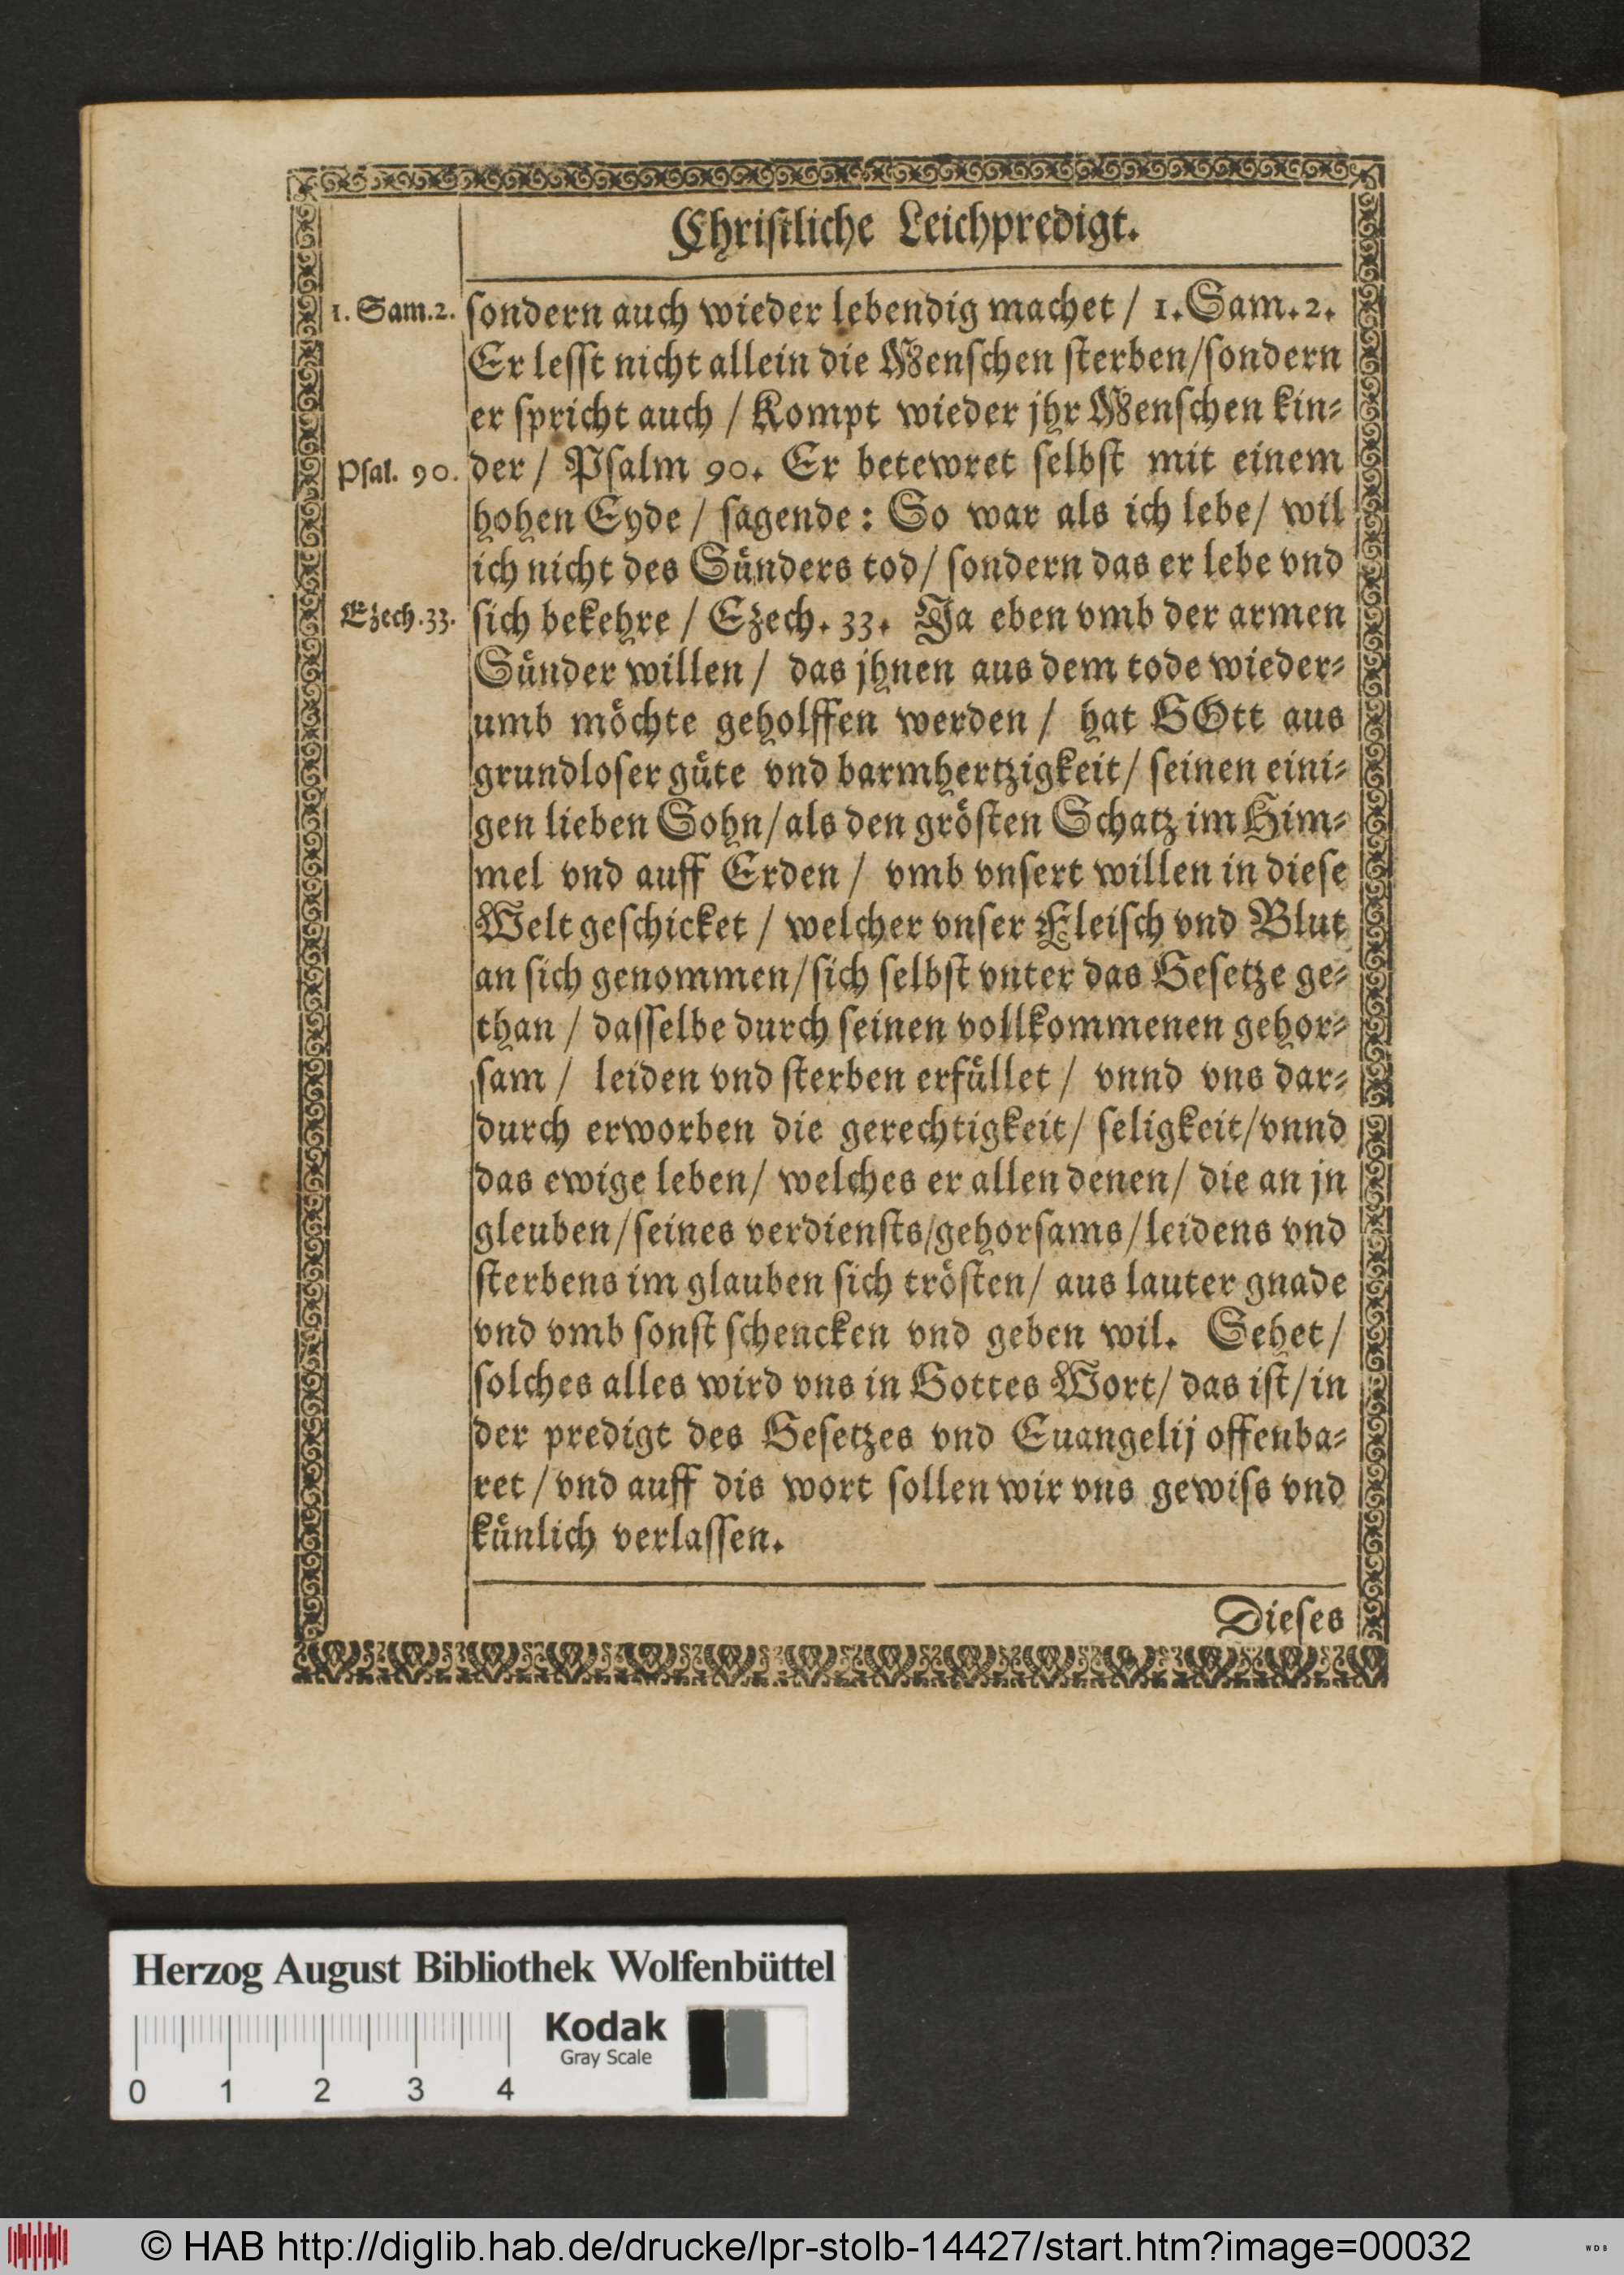 Chriſtliche Leichpredigt.
1. Sam.2.
ſondern auch wieder lebendig machet / 1. Sam. 2.
Er leſſt nicht allein die Menſchen ſterben/ſondern
er ſpricht auch / Kompt wieder jhr Menſchen kin⸗
Pſal. 90.
der / Pſalm 90. Er betewret ſelbſt mit einem
hohen Eyde / ſagende: So war als ich lebe/ wil
ich nicht des Sünders tod/ ſondern das er lebe vnd
Ezech.33.
ſich bekehre / Ezech. 33. Ja eben vmb der armen
Sünder willen / das jhnen aus dem tode wieder⸗
umb möchte geholffen werden / hat GOtt aus
grundloſer güte vnd barmhertzigkeit/ ſeinen eini⸗
gen lieben Sohn/als den gröſten Schatz im Him⸗
mel vnd auff Erden / vmb vnſert willen in dieſe
Welt geſchicket / welcher vnſer Fleiſch vnd Blut
an ſich genommen/ſich ſelbſt vnter das Geſetze ge⸗
than / daſſelbe durch ſeinen vollkommenen gehor⸗
ſam / leiden vnd ſterben erfüllet / vnnd vns dar⸗
durch erworben die gerechtigkeit/ ſeligkeit/vnnd
das ewige leben/ welches er allen denen/ die an jn
gleuben/ſeines verdienſts/gehorſams/leidens vnd
ſterbens im glauben ſich tröſten/ aus lauter gnade
vnd vmb ſonſt ſchencken vnd geben wil. Sehet/
ſolches alles wird vns in Gottes Wort/ das iſt/in
der predigt des Geſetzes vnd Euangelij offenba⸗
ret / vnd auff dis wort ſollen wir vns gewiſs vnd
künlich verlaſſen.
Dieſes
Herzog August Bibliothek Wolfenbüttel
Kodak
Gray Scale
0 1 2 3 4
© HAB http://diglib.hab.de/drucke/lpr-stolb-14427/start.htm?image=00032
WDB